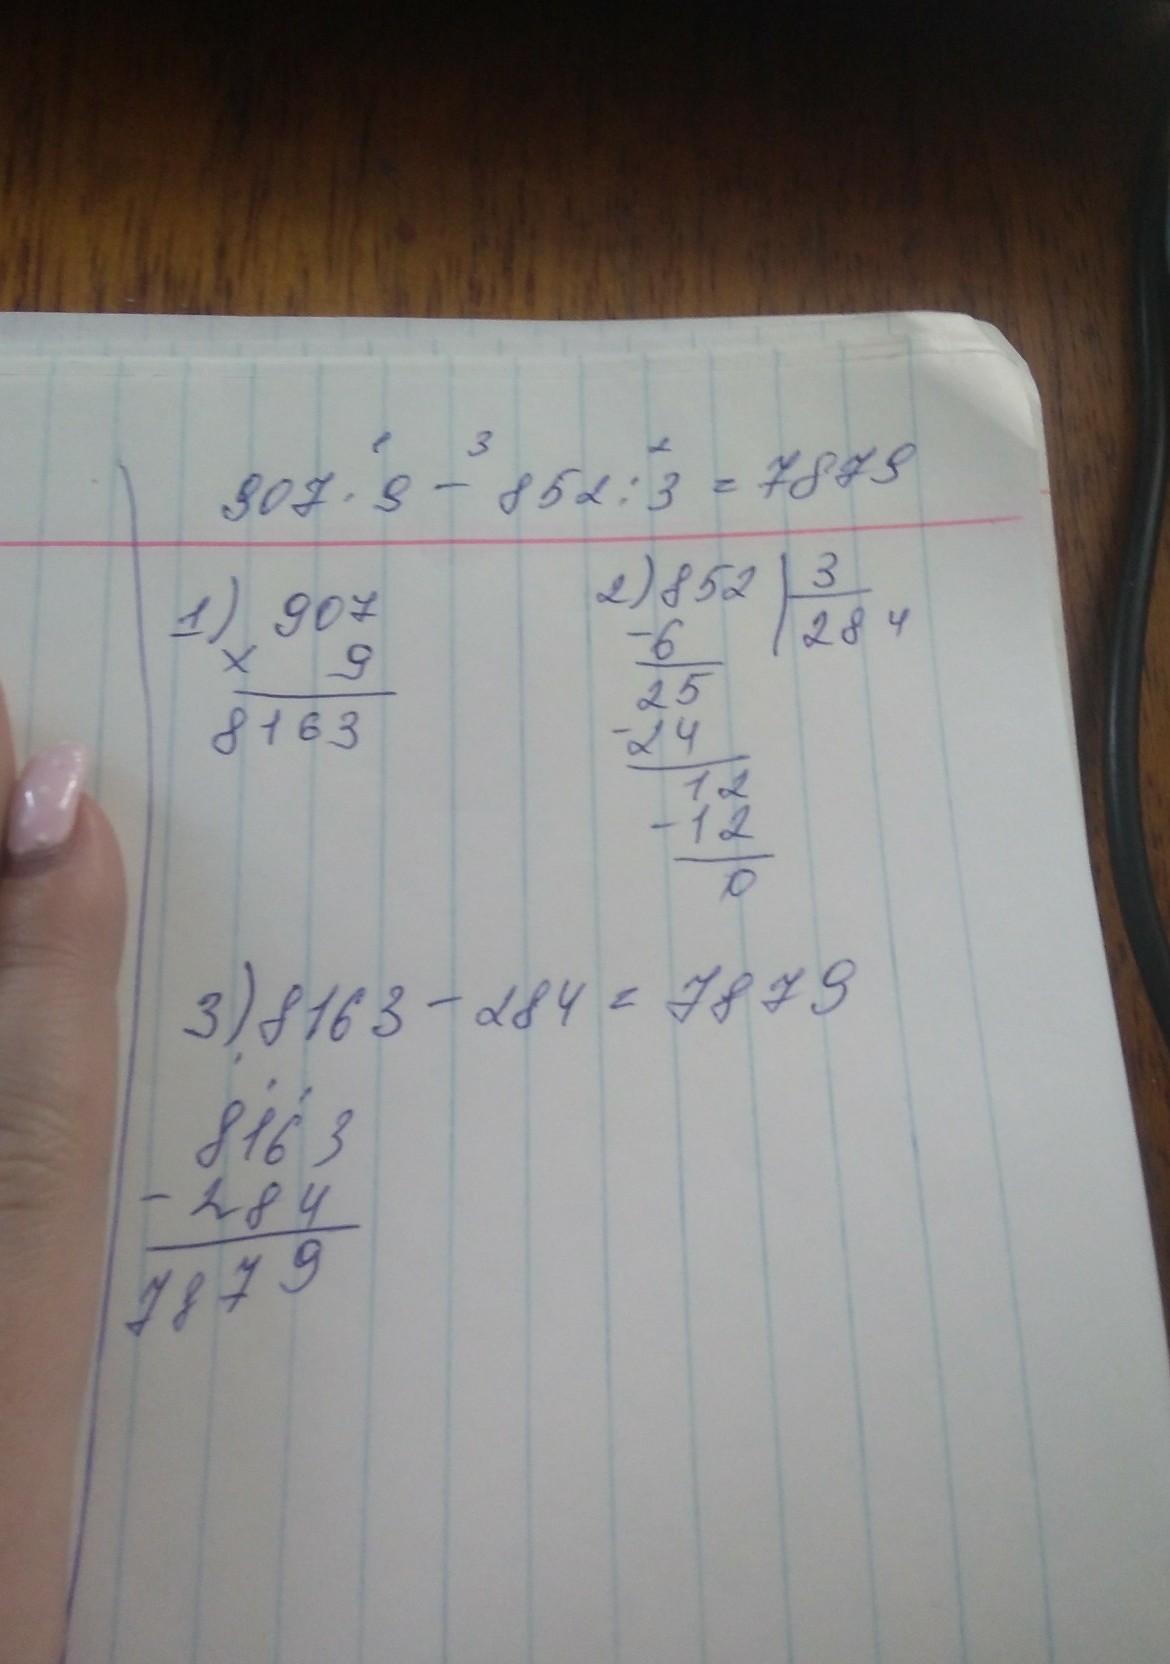 1 3 2
907 · 9 - 852 : 3 = 7879
1) 907
× 9
8163
2) 852 | 3
-6 284
25
-24
12
-12
0
3) 8163 - 284 = 7879
8163
- 284
7879